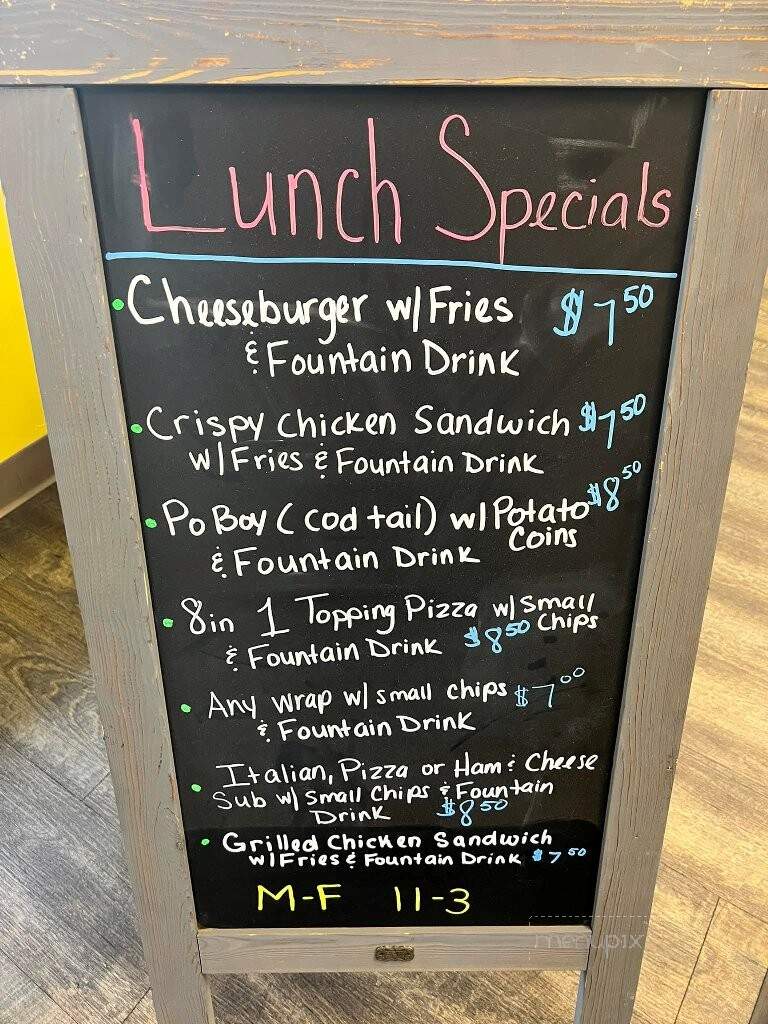 Lunch Specials
• Cheeseburger w/Fries $7.50
& Fountain Drink
• Crispy Chicken Sandwich $7.50
w/Fries & Fountain Drink
• Po Boy (cod tail) w/Potato $8.50
Coins
& Fountain Drink
• 8in 1 Topping Pizza w/small
chips
& Fountain Drink $8.50
• Any wrap w/small chips $7.00
& Fountain Drink
• Italian, Pizza or Ham & Cheese
Sub w/small chips & Fountain
Drink $8.50
• Grilled Chicken Sandwich
w/Fries & Fountain Drink $7.50
M-F 11-3
menupix